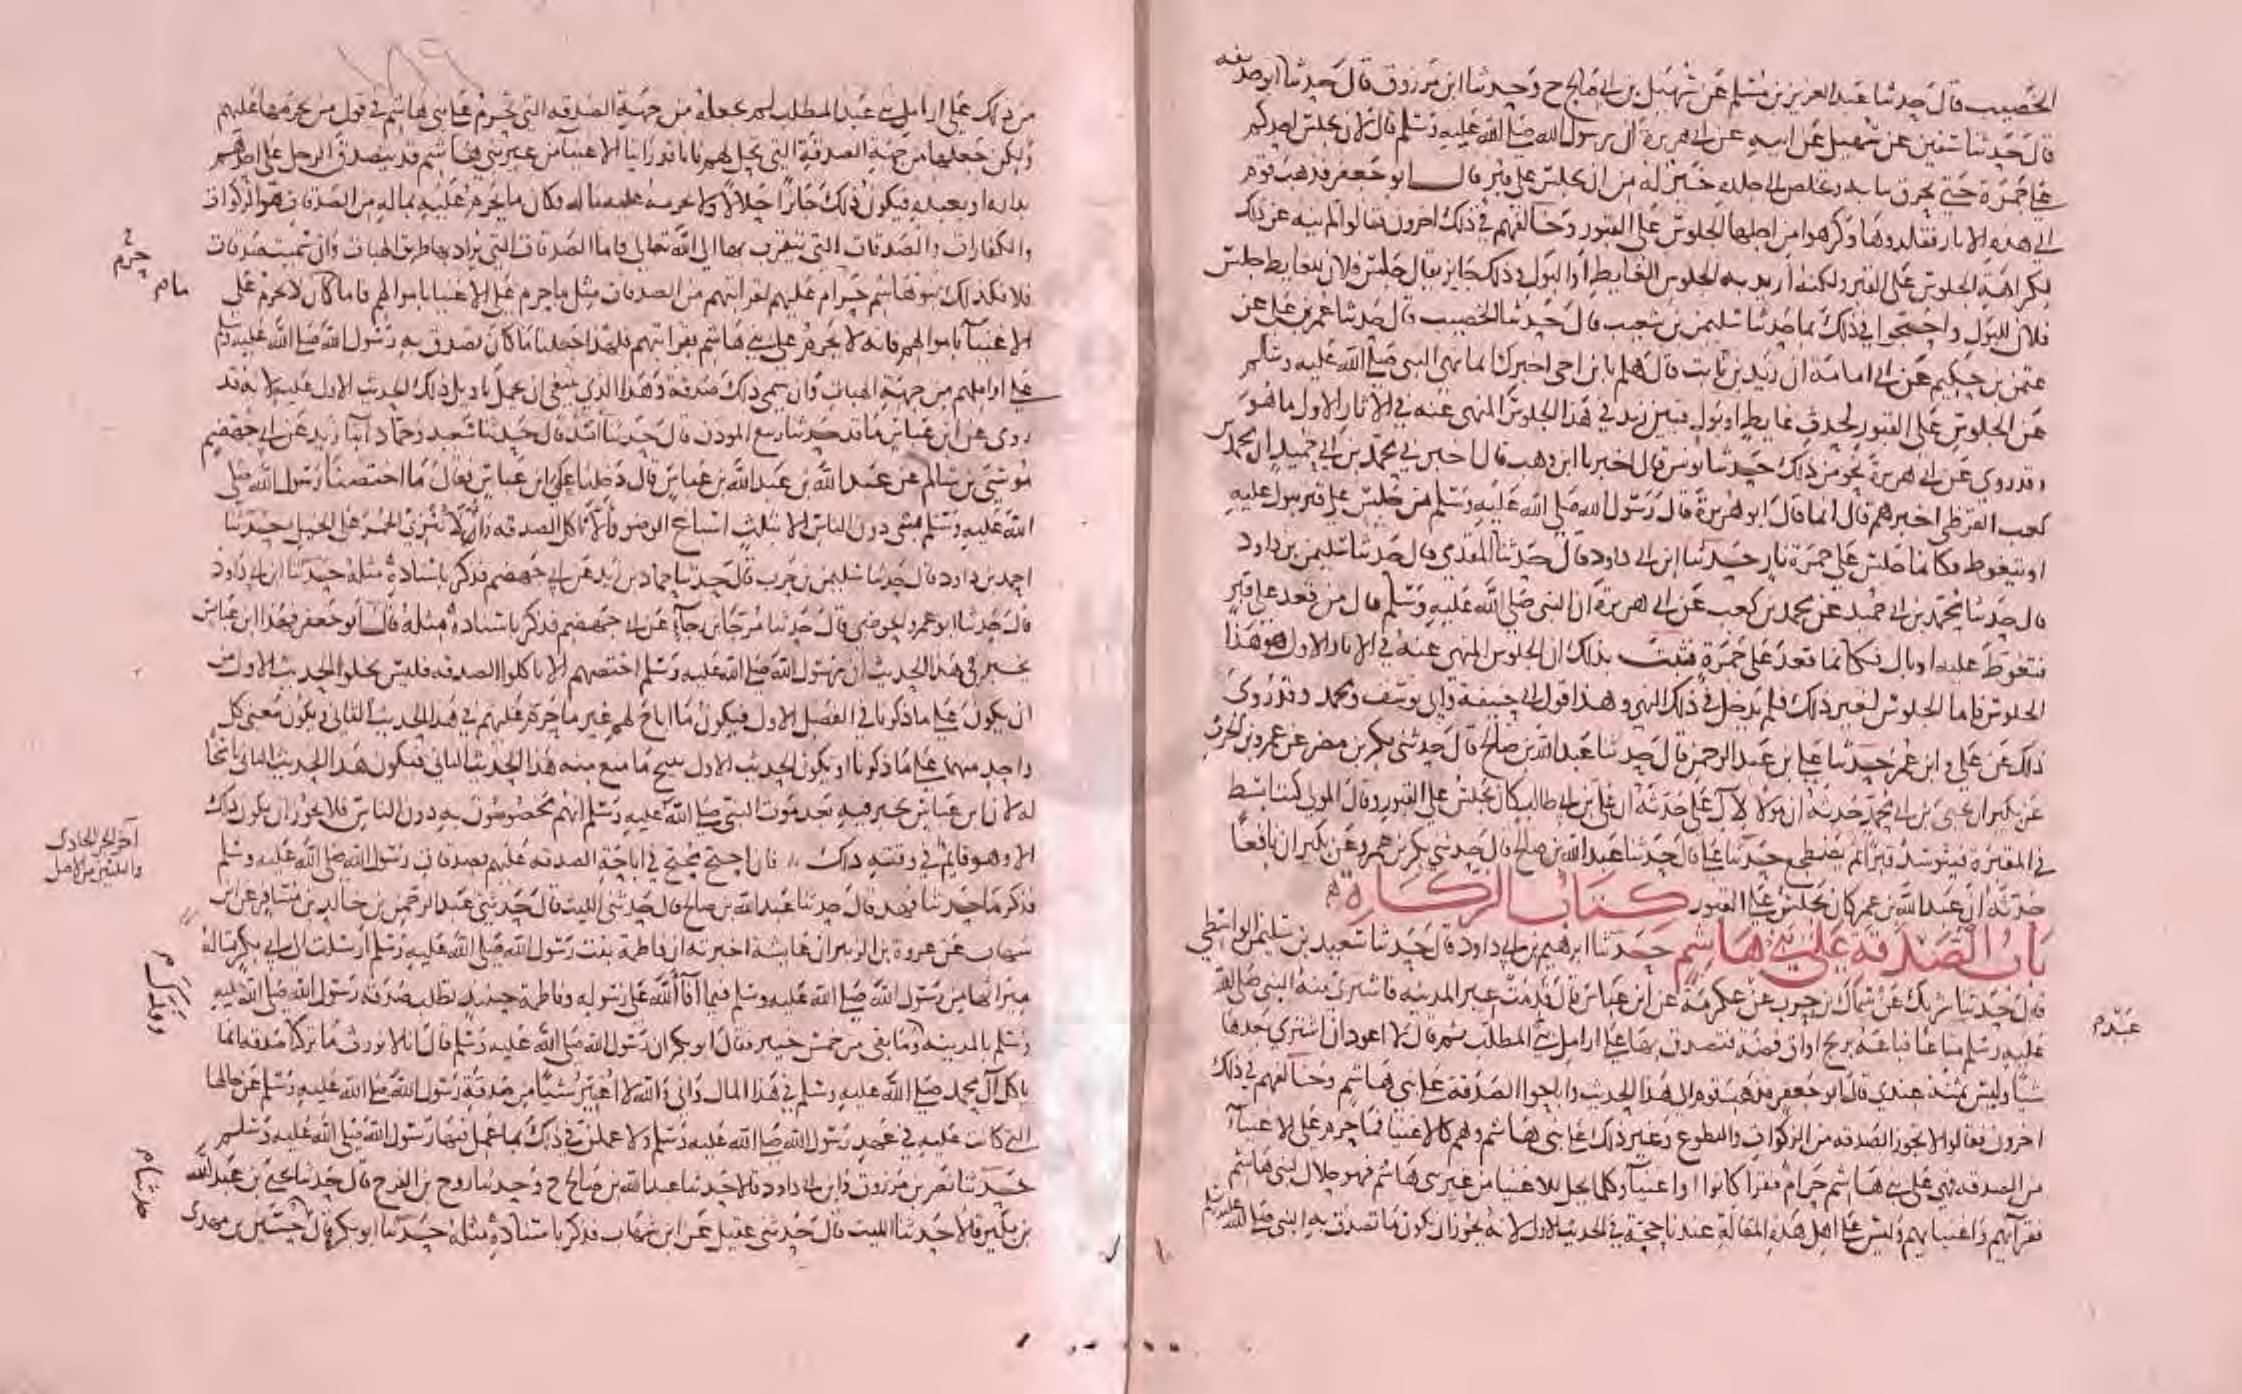 الخصيب قال حدثنا عبد العزيز بن مسلم عن سهيل بن ابي صالح ح وحدثنا ابن مرزوق قال حدثنا ابو حذيفة
قال حدثنا سفين عن سهيل عن ابيه عن ابي هريرة ان رسول الله صلى الله عليه وسلم قال لان يجلس احدكم
على جمرة حتى تحرق ثيابه وتخلص الى جلده خير له من ان يجلس على قبر قال ابو جعفر فذهب قوم
الى هذه الاثار فقلدوها وكرهوا من اجلها الجلوس على القبور وخالفهم في ذلك اخرون فقالوا لم ينه عن ذلك
لكراهة الجلوس على القبر ولكنه اريد به الجلوس للغايط او البول وذلك جايز يقال جلس فلان للغايط جلس
فلان للبول واحتجوا في ذلك بما حدثنا سليمن بن شعيب قال حدثنا الخصيب قال حدثنا عمر بن علي عن
عثمن بن حكيم عن ابي امامة ان زيد بن ثابت قال هلم يا بن اخي اخبرك انما نهى النبي صلى الله عليه وسلم
عن الجلوس على القبور لحدث غايط او بول فبين زيد في هذا الجلوس المنهي عنه في الاثار الاول ما هو
وقد روي عن ابي هريرة نحو من ذلك حدثنا يونس قال اخبرنا ابن وهب قال اخبرني محمد بن ابي حميد ان محمد بن
كعب القرظي اخبرهم قال انما قال ابو هريرة قال رسول الله صلى الله عليه وسلم من جلس على قبر يبول عليه
او يتغوط فكانما جلس على جمرة نار حدثنا ابن ابي داود قال حدثنا المقدمي قال حدثنا سليمن بن داود
قال حدثنا محمد بن ابي حميد عن محمد بن كعب عن ابي هريرة ان النبي صلى الله عليه وسلم قال من قعد على قبر
فتغوط عليه او بال فكانما قعد على جمرة فثبت بذلك ان الجلوس المنهي عنه في الاثار الاول هو هذا
الجلوس فاما الجلوس لغير ذلك فلم يدخل في ذلك النهي وهذا قول ابي حنيفة وابي يوسف ومحمد وقد روي
ذلك عن علي وابن عمر حدثنا علي بن عبد الرحمن قال حدثنا عبد الله بن صالح قال حدثني بكر بن مضر عن عمرو بن الحرث
عن بكير ان يحيى بن ابي محمد حدثه ان مولا لال علي حدثه ان علي بن ابي طالب كان يجلس على القبور وقال المولى كنت ابسط
في المقبرة فيتوسد قبرا ثم يضطجع حدثنا علي قال حدثنا عبد الله بن صالح قال حدثني بكر بن عمرو عن بكير ان نافعا
حدثه ان عبد الله بن عمر كان يجلس على القبور كتاب الزكاة
باب الصدقة على بني هاشم حدثنا ابرهيم بن ابي داود قال حدثنا سعيد بن سليمن الواسطي
قال حدثنا شريك عن سماك بن حرب عن عكرمة عن ابن عباس قال قدمت عير المدينة فاشترى منه النبي صلى الله
عليه وسلم متاعا فباعه بربح اواق فضة فتصدق بها على ارامل بني المطلب ثم قال لا اعود ان اشتري بعدها
شيا وليس ثمنه عندي قال ابو جعفر فذهب قوم الى هذا الحديث واباحوا الصدقة على بني هاشم وخالفهم في ذلك
اخرون فقالوا لا يجوز الصدقة من الزكوات والتطوع وغير ذلك على بني هاشم وهم كالاغنيا فما حرم على الاغنيآ
من الصدقة فهي على بني هاشم حرام فقرا كانوا او اغنيآ وكلما يحل للاغنيا من غير بني هاشم فهو حلال لبني هاشم
فقرآيهم واغنيايهم وليس على اهل هذه المقالة عندنا حجة في الحديث الاول لانه يجوز ان يكون ما تصدق به النبي صلى الله عليه وسلم
عبد م
١٨٩
من ذلك على ارامل بني عبد المطلب لم يجعله من جهة الصدقة التي تحرم على بني هاشم في قول من يحرمها عليهم
ولكن جعلها من جهة الصدقة التي تحل لهم فانا قد راينا الاغنيآ من غير بني هاشم قد يتصدق الرجل على احدهم
بداره او بعبده فيكون ذلك جائزا حلالا ولا يحرمه عليه ماله فكان ما يحرم عليه بماله من الصدقات هو الزكوات
والكفارات والصدقات التي يتقرب بها الى الله تعالى فاما الصدقات التي يراد بها طريق الهبات وان سميت صدقات
فلا فكذلك بنو هاشم حرام عليهم لقرابتهم من الصدقات مثل ما حرم على الاغنيا باموالهم فاما ما كان لا يحرم على
الاغنيآ باموالهم فانه لا يحرم على بني هاشم بقرابتهم فلهذا جعلنا ما كان تصدق به رسول الله صلى الله عليه وسلم
على اراملهم من جهة الهبات وان سمي ذلك صدقة وهذا الذي ينبغي ان يحمل تاويل ذلك الحديث الاول عليه لانه قد
روي عن ابن عباس ما قد حدثنا ربيع المودن قال حدثنا اسد قال حدثنا سعيد وحماد ابنا زيد عن ابي جهضم
موسى بن سالم عن عبد الله بن عبد الله بن عباس قال دخلنا على ابن عباس فقال ما اختصنا رسول الله صلى
الله عليه وسلم بشي دون الناس الا بثلث اسباغ الوضو وألا نأكل الصدقة وان لا ننزي الحمر على الخيل حدثنا
احمد بن داود قال حدثنا سليمن بن حرب قال حدثنا حماد بن زيد عن ابي جهضم فذكر باسناده مثله حدثنا ابن ابي داود
قال حدثنا ابو عمر الحوضي قال حدثنا مرجا بن رجآ عن ابي جهضم فذكر باسناده مثله قال ابو جعفر فهذا ابن عباس
يخبر في هذا الحديث ان رسول الله صلى الله عليه وسلم اختصهم الا ياكلوا الصدقة فليس يخلو الحديث الاول من
ان يكون على ما ذكرنا في الفصل الاول فيكون ما اباح لهم غير ما حرم عليهم في هذا الحديث الثاني ويكون معنى كل
واحد منهما على ما ذكرنا او يكون الحديث الاول يبيح ما منع منه هذا الحديث الثاني فيكون هذا الحديث الثاني ناسخا
له لان ابن عباس يخبر فيه بعد موت النبي صلى الله عليه وسلم انهم مخصوصون به دون الناس فلا يجوز ان يكون ذلك
الا وهو قايم في وقته ذلك فان احتج محتج في اباحة الصدقة عليهم بصدقات رسول الله صلى الله عليه وسلم
فذكر ما حدثنا فهد قال حدثنا عبد الله بن صالح قال حدثني الليث قال حدثني عبد الرحمن بن خالد بن مسافر عن ابن
شهاب عن عروة بن الزبير ان عايشة اخبرته ان فاطمة بنت رسول الله صلى الله عليه وسلم ارسلت الى ابي بكر تساله
ميراثها من رسول الله صلى الله عليه وسلم فيما أفآ الله على رسوله وفاطمة حينئذ تطلب صدقة رسول الله صلى الله عليه
وسلم بالمدينة وما بقي من خمس خيبر فقال ابو بكر ان رسول الله صلى الله عليه وسلم قال انا لا نورث ما تركنا صدقة انما
ياكل آل محمد صلى الله عليه وسلم في هذا المال واني والله لا اغير شيا من صدقة رسول الله صلى الله عليه وسلم عن حالها
التي كانت عليه في عهد رسول الله صلى الله عليه وسلم ولا عملن في ذلك بما عمل فيها رسول الله صلى الله عليه وسلم
حدثنا نصر بن مرزوق وابن ابي داود قالا حدثنا عبد الله بن صالح ح وحدثنا روح بن الفرج قال حدثنا يحيى بن عبد الله
بن بكير قالا حدثنا الليث قال حدثني عقيل عن ابن شهاب فذكر باسناده مثله حدثنا ابو بكرة قال حدثنا حسين بن مهدي
حرم
آخر الجز الحادي
والثلثين من الاصل
وفدك م